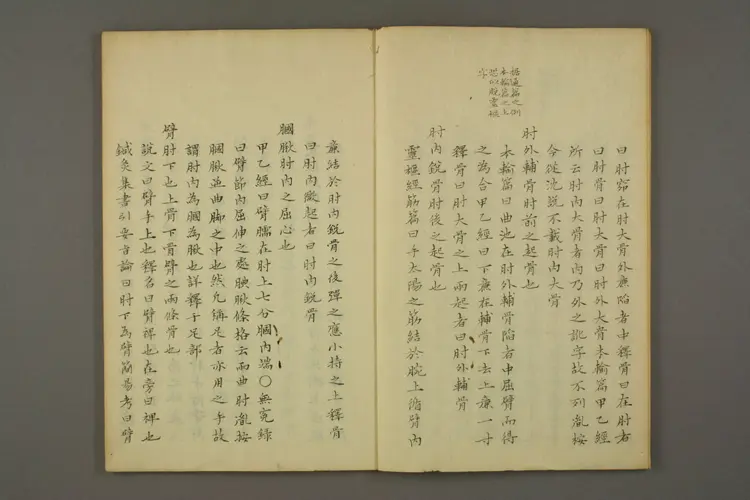 據通篇之例
本輸篇之上
恐似脫靈樞
字
曰肘窌在肘大骨外廉陷者中釋骨曰在肘者
曰肘骨曰肘大骨曰肘外大骨本輸篇甲乙經
所云肘內大骨者內乃外之訛字故不列胤按
今從沈說不載肘內大骨
肘外輔骨肘前之起骨也
本輸篇曰曲池在肘外輔骨陷者中屈臂而得
之為合甲乙經曰下廉在輔骨下去上廉一寸
釋骨曰肘大骨之上兩起者曰肘外輔骨
肘內銳骨肘後之起骨也
靈樞經筋篇曰手太陽之筋結於腕上循臂內
廉結於肘內銳骨之後彈之應小持之上釋骨
曰肘內微起者曰肘內銳骨
膕 肘內之屈心也
甲乙經曰臂臑在肘上七分膕內端〇無冤錄
曰臂節內屈伸之處 條格云兩曲肘胤按
膕 並曲腳之中也然凡稱足者亦用之手故
謂肘內為膕為 也詳釋于足部
臂肘下也上骨下骨臂之兩條骨也
說文曰臂手上也釋名曰臂裨也在旁曰裨也
鍼灸集書引要旨論曰肘下為臂簡易考曰臂